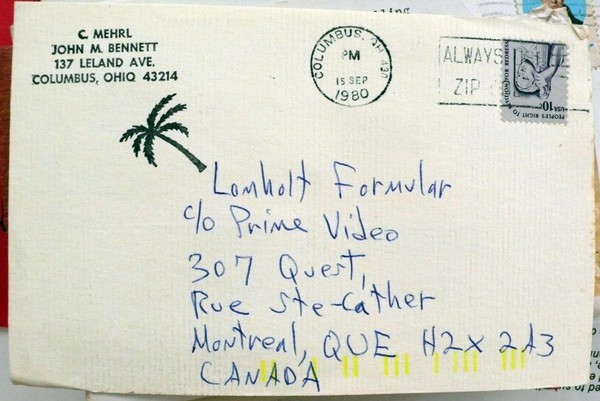 C. MEHRL
JOHN M. BENNETT
137 LELAND AVE.
COLUMBUS, OHIO 43214
COLUMBUS, OH
PM
15 SEP
1980
ALWAYS
ZIP
PEOPLE'S RIGHT TO PETITION FOR REDRESS
USA 10c
Lomholt Formular
c/o Prime Video
307 Quest,
Rue Ste-Cather
Montreal, QUE H2X 2A3
CANADA